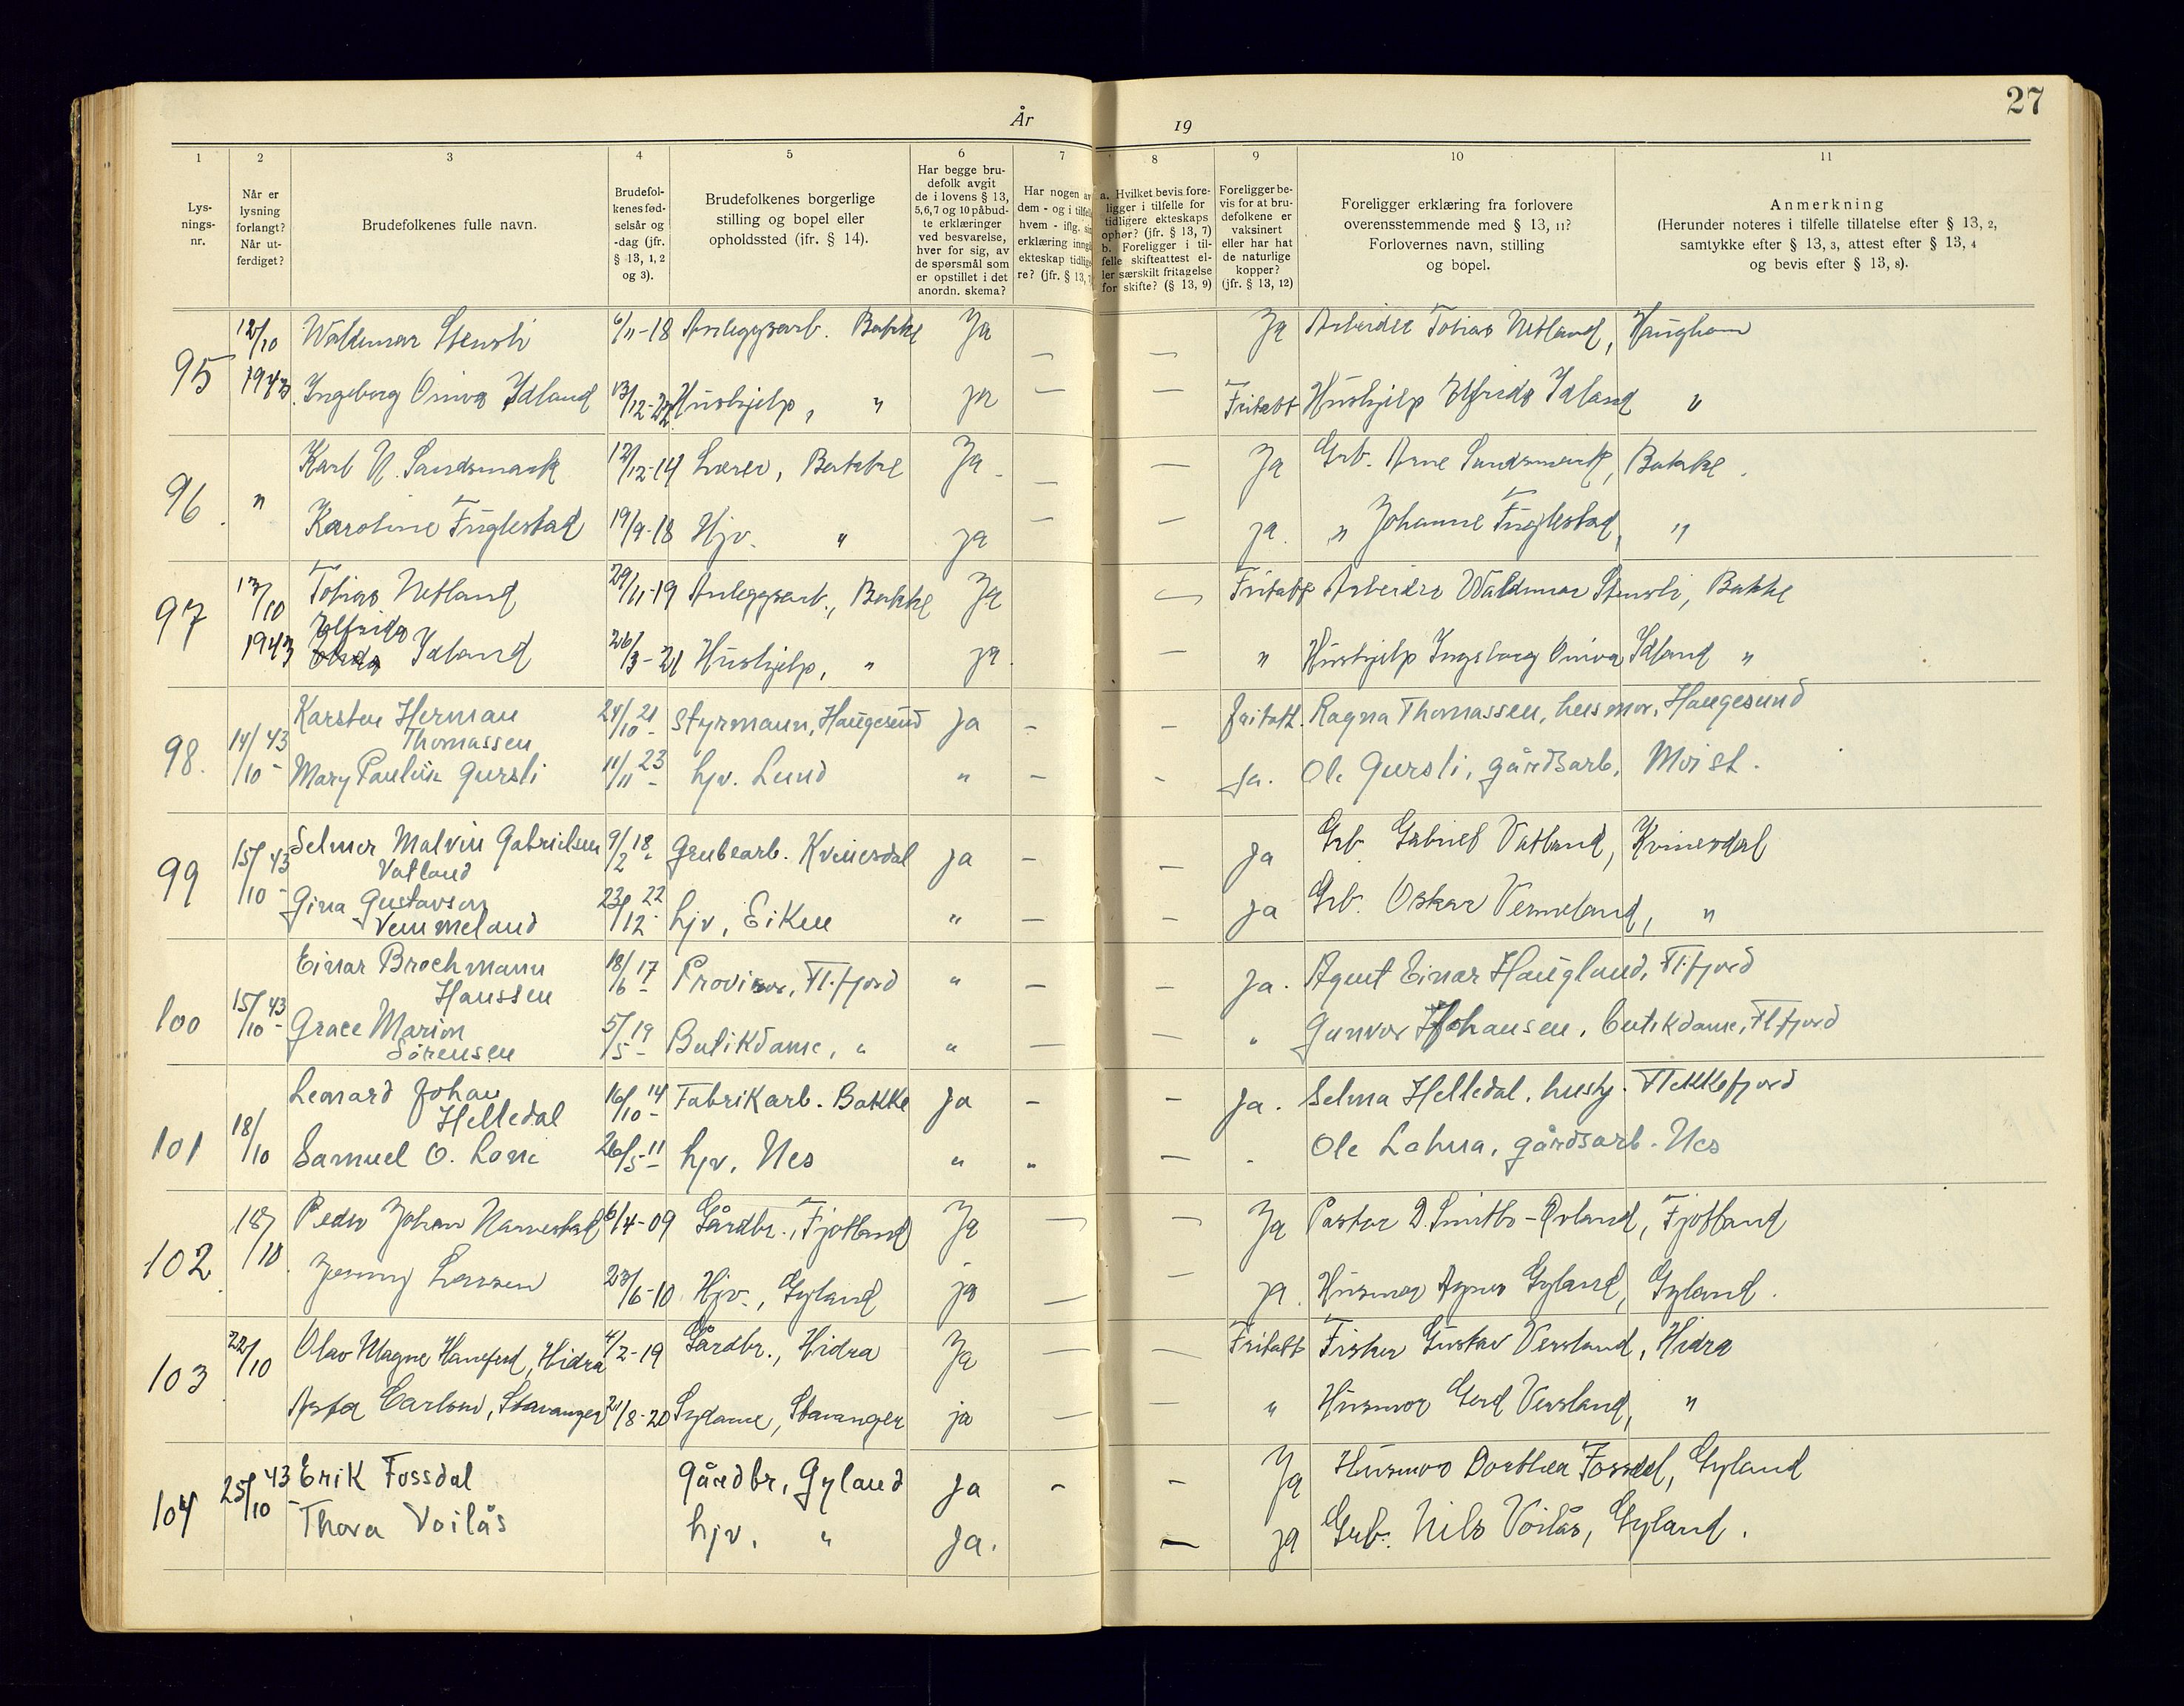 27
År 19
1 2 3 4 5 6 7 8 9 10 11
Lys-
nings-
nr.
Når er
lysning
forlangt?
Når ut-
ferdiget?
Brudefolkenes fulle navn.
Brudefol-
kenes fød-
selsår og
-dag (jfr.
§ 13, 1, 2
og 3).
Brudefolkenes borgerlige
stilling og bopel eller
opholdssted (jfr. § 14).
Har begge bru-
defolk avgit
de i lovens § 13,
5,6,7 og 10 påbud-
te erklæringer
ved besvarelse,
hver for sig, av
de spørsmål som
er opstillet i det
anordn. skema?
Har nogen av
dem - og i tilfelle
hvem - iflg. sin
erklæring inngå
ekteskap tidlige
re? (jfr. § 13,
a. Hvilket bevis fore-
ligger i tilfelle for
tidligere ekteskaps
ophør? (jfr. § 13, 7)
b. Foreligger i til-
felle skifteattest el-
ler særskilt fritagelse
for skifte? (§ 13, 9)
Foreligger be-
vis for at bru-
defolkene er
vaksinert
eller har hat
de naturlige
kopper?
(jfr. § 13, 12)
Foreligger erklæring fra forlovere
overensstemmende med § 13, 11?
Forlovernes navn, stilling
og bopel.
Anmerkning
(Herunder noteres i tilfelle tillatelse efter § 13, 2,
samtykke efter § 13, 3, attest efter § 13, 4
og bevis efter § 13, 8).
95 12/10 1943 Waldemar Stensli 6/11-18 Anleggsarb. Bakke Ja — — Ja Arbeider Tobias Netland, Haugham
Ingeborg Oniva Idland 13/12-22 Hushjelp, " ja — — Fritatt Hushjelp Elfrida Idland "
96 " Karl N. Sandsmark 12/12-14 Lærer, Bakke Ja — — Ja Grb. Arne Sandsmark, Bakke.
Karoline Fuglestad 19/9-18 Hjv. " ja — — ja. " Johanne Fuglestad, "
97 13/10 1943 Tobias Netland 29/11-19 Anleggsarb., Bakke Ja — Fritatt Arbeider Waldemar Stensli, Bakke
Elfrida
Idland 26/3-21 Hushjelp, " ja. — " Hushjelp Ingeborg Oniva Idland "
98. 14/10-43 Karsten Herman
Thomassen 24/10-21 Styrmann, Haugesund Ja — — fritatt. Ragna Thomassen, husmor, Haugesund
Mary Paulin Gursli 11/11-23 hjv. Lund " — - Ja. Ole Gursli, gårdsarb, Moi st.
99 15/10-43 Selmer Malvin Gabrielsen
Vatland 9/2-18 Grubearb. Kvinesdal ja — — ja Grb. Gabriel Vatland, Kvinesdal
Gina Gustavson
Vemmeland 23/12-22 hjv, Eiken " — — ja Grb. Oskar Vemeland, "
100 15/10-43 Einar Brochmann
Hanssen 18/6-17 Provisor, Fl.fjord " — — Ja. Agent Einar Haugland, Fl.fjord
Grace Marion
Sørensen 5/5-19 Butikdame, " " — — " Gunvor Johansen, butikdame, Fl.fjord
101 18/10 Lenard Johan
Helledal 16/10-14 Fabrikarb. Bakke Ja — — Ja. Selma Helledal, hushj. Flekkefjord
Samuel O. 26/5-11 hjv, Nes " " — - Ole Lohna, gårdsarb. Nes
102 18/10 Peder Johan Narvestad 6/4-09 Gårdbr., Fjotland Ja — — Ja Pastor D. Smith-Orland, Fjotland
Jenny Larsen 23/6-10 Hjv., Gyland ja — — ja. Husmor Agnes Gyland, Gyland.
103 22/10 Olav Magne Hidra 4/2-19 Gårdbr., Hidra Ja — — Fritatt Fisker Gustav Versland, Hidra
Asta Carlson, Stavanger 21/8-20 Sydame, Stavanger ja — — " Husmor Gerd Versland, "
104 25/10-43 Erik Fossdal Gårdbr, Gyland Ja - - Ja Husmor Dorthea Fossdal, Gyland
Thora Voilås hjv. " Ja. — ja Grb. Nils Voilås, Gyland.